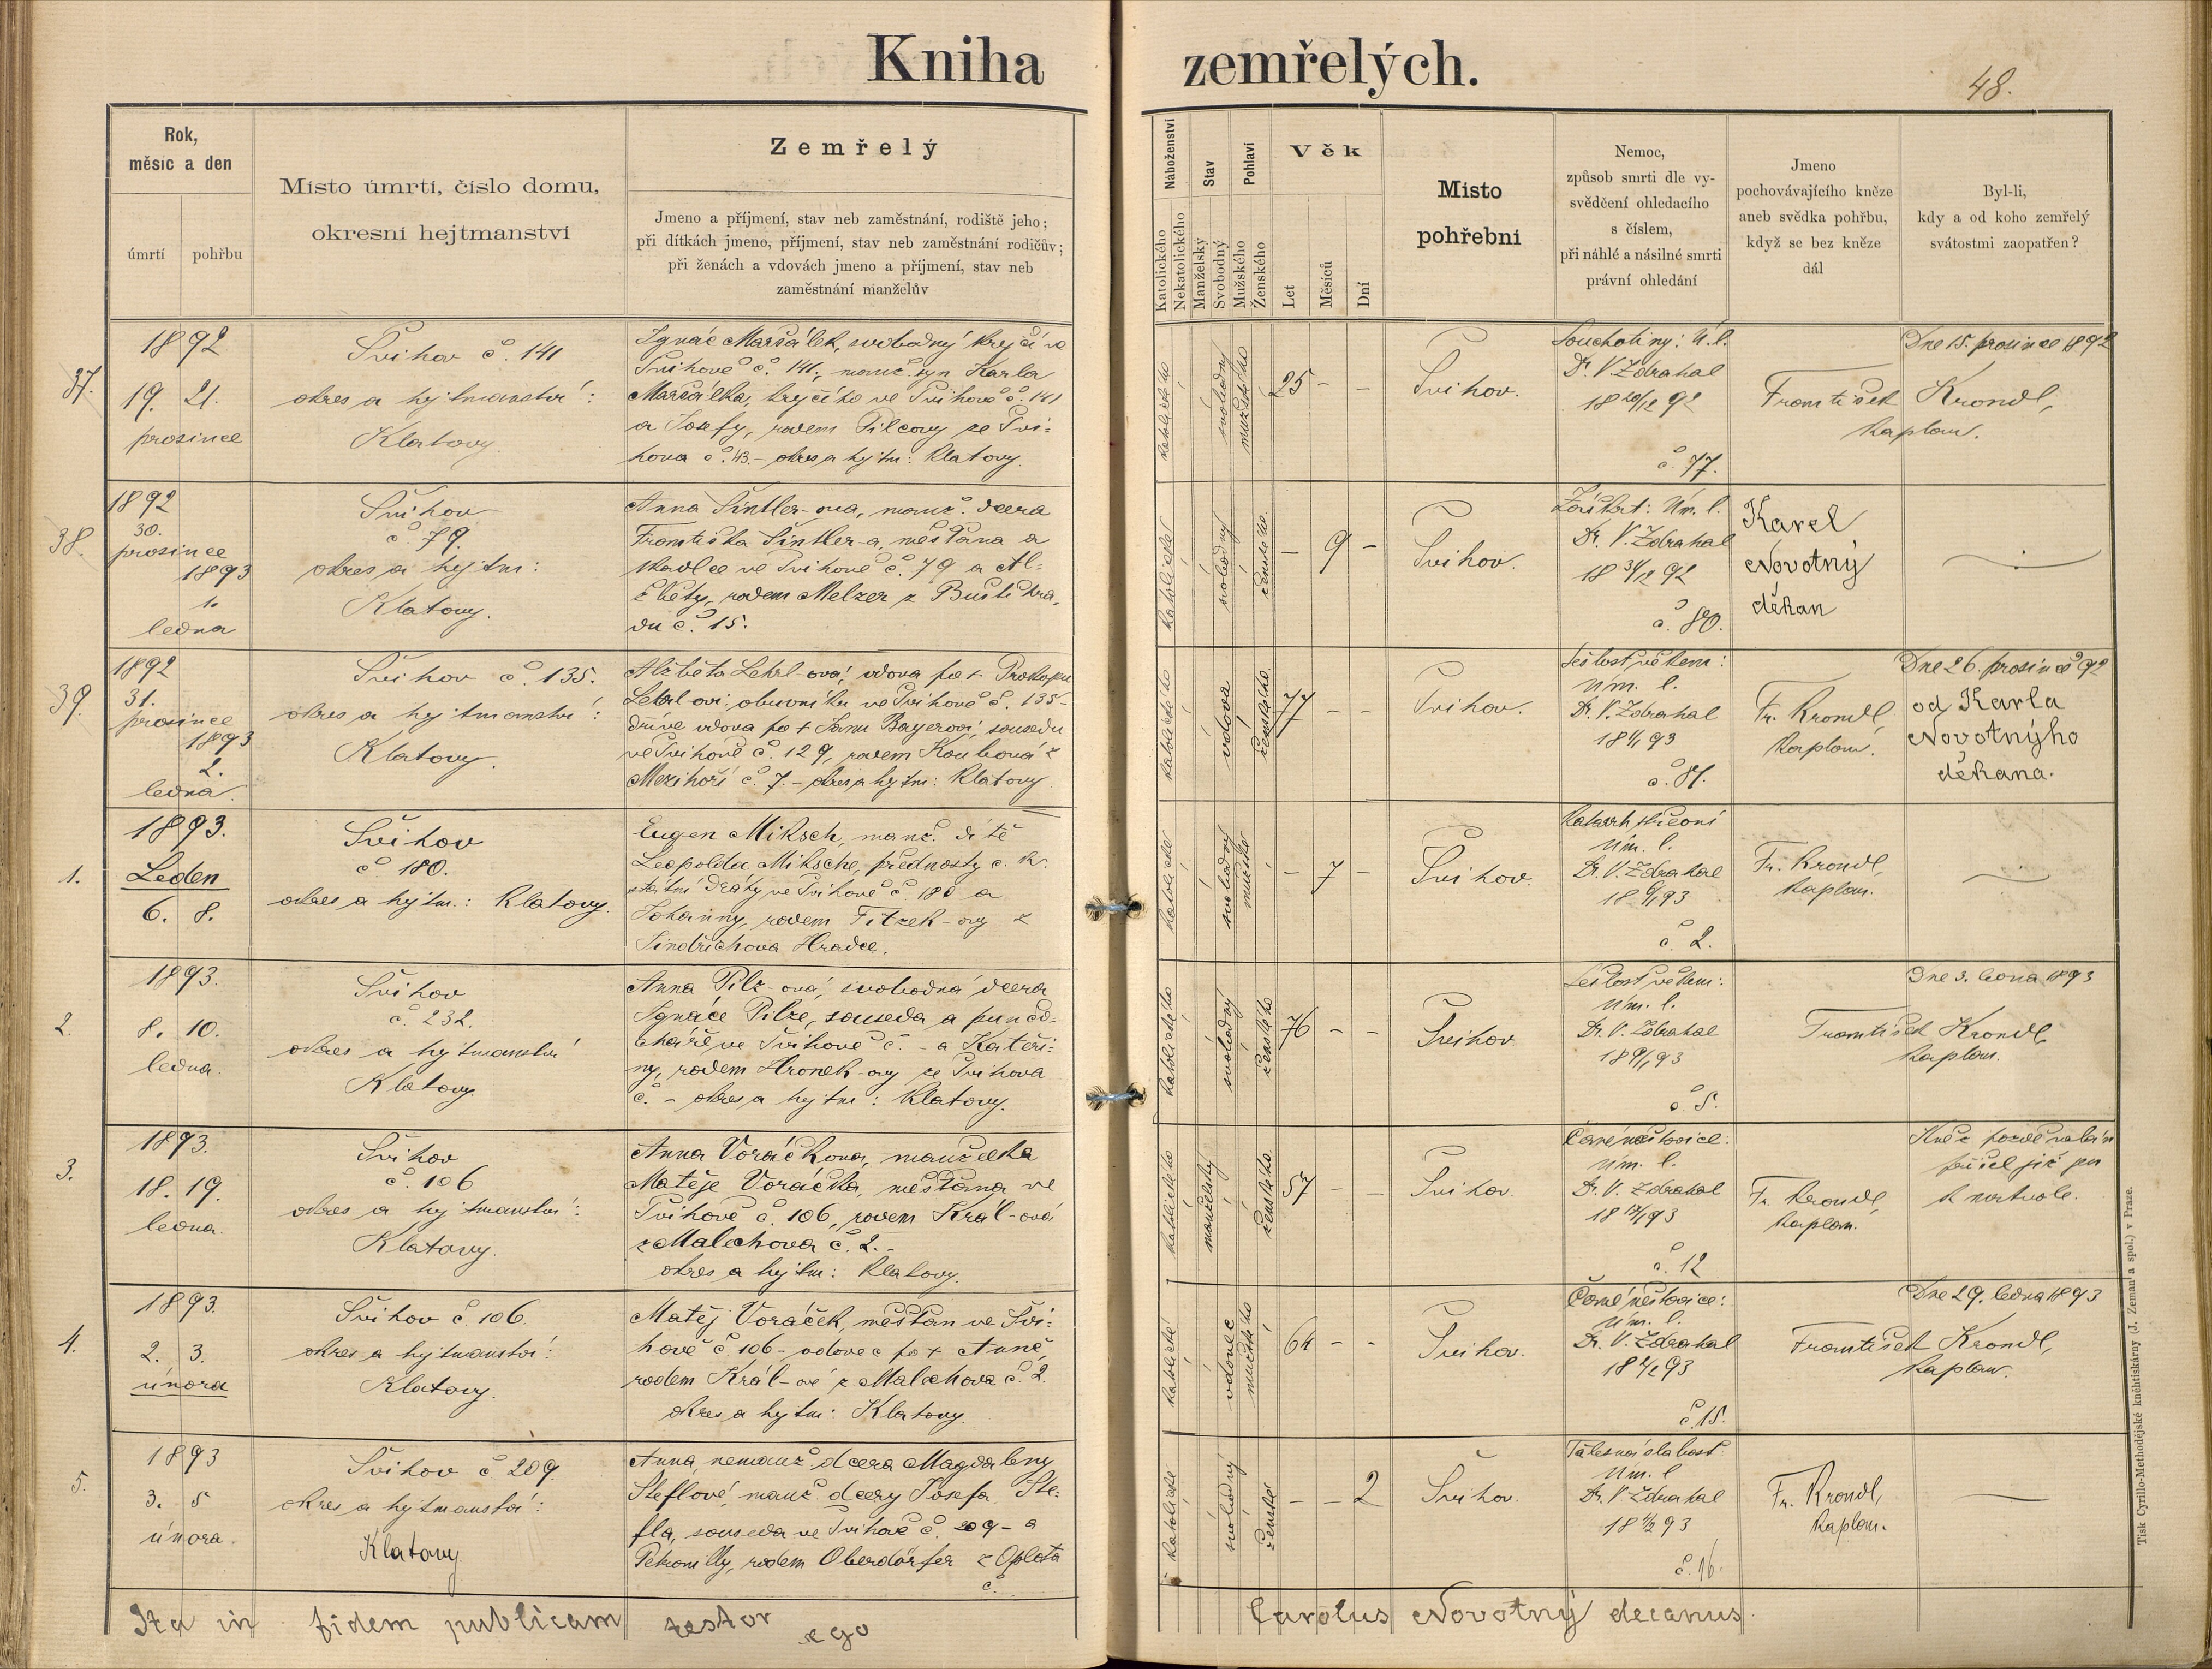 Kniha zemřelých.
48.
Rok,
měsíc a den
úmrtí pohřbu
Místo úmrtí, číslo domu,
okresní hejtmanství
Zemřelý
Jmeno a příjmení, stav neb zaměstnání, rodiště jeho;
při dítkách jmeno, příjmení, stav neb zaměstnání rodičův;
při ženách a vdovách jmeno a příjmení, stav neb
zaměstnání manželův
Náboženství
Katolického
Nekatolického
Stav
Manželský
Svobodný
Pohlaví
Mužského
Ženského
Věk
Let
Měsíců
Dní
Místo
pohřební
Nemoc,
způsob smrti dle vy-
svědčení ohledacího
s číslem,
při náhlé a násilné smrti
právní ohledání
Jmeno
pochovávajícího kněze
aneb svědka pohřbu,
když se bez kněze
dál
Byl-li,
kdy a od koho zemřelý
svátostmi zaopatřen?
37.
1892
19. 21.
prosince
Švihov č. 141
okres a hejtmanství:
Klatovy.
Ignác Maršálek, svobodný krejčí ve
Švihově č. 141, manž. syn Karla
Maršálka, krejčího ve Švihově č. 141
a Josefy, rodem Pilcovy ze Švi-
hova č. 43. – okres a hejtm: Klatovy.
katolického
svobodný
mužského
25 – –
Švihov.
Souchotiny: Ú. l.
Dr. V. Zdrahal
18 20/12 92
č. 77.
František Krondl,
kaplan.
Dne 15. prosince 1892
38.
1892
30.
prosince
1893
1.
ledna
Švihov
č. 79.
okres a hejtm:
Klatovy.
Anna Šintler-ova, manž. dcera
Františka Šintler-a, měšťana a
tkadlce ve Švihově č. 79 a Al-
žběty, rodem Melzer z Buštěhra-
du č. 15.
katolické
svobodný
ženského
– 9 –
Švihov.
Záškrt: Úm. l.
Dr. V. Zdrahal
18 31/12 92
č. 80.
Karel
Novotný
děkan
39.
1892
31.
prosince
1893
2.
ledna.
Švihov č. 135.
okres a hejtmanství:
Klatovy.
Alžběta Lehrl-ová, vdova po † Prokopu
Lehrl-ovi, obuvníku ve Švihově č. 135 –
dříve vdova po † Janu Bayerovi, sousedu
ve Švihově č. 129, rodem Koubová z
Mezihoří č. 7. – okres a hejtm: Klatovy
katolického
vdova
ženského
77 – –
Švihov.
Sešlost věkem:
Úm. l.
Dr. V. Zdrahal
18 1/1 93
č. 81.
Fr. Krondl,
kaplan.
Dne 26. prosince 92
od Karla
Novotnýho
děkana.
1.
1893.
Leden
6. 8.
Švihov
č. 180.
okres a hejtm.: Klatovy.
Eugen Miksch, manž. dítě
Leopolda Miksche, přednosty c. k.
státní dráhy ve Švihově č. 180 a
Johanny, rodem Fitzek-ovy z
Jindřichova Hradce.
katolické
svobodný
mužské
– 7 –
Švihov.
Katarrh střevní
Úm. l.
Dr. V. Zdrahal
18 6/1 93
č. 2.
Fr. Krondl,
kaplan.
2.
1893.
8. 10.
ledna.
Švihov
č. 232.
okres a hejtmanství
Klatovy.
Anna Pilz-ová, svobodná dcera
Ignáce Pilze, souseda a punčo-
cháře ve Švihově č. – a Kateři-
ny, rodem Hronek-ovy ze Švihova
č. – okres a hejtm: Klatovy.
katolického
svobodný
ženského
76 – –
Švihov.
Sešlost věkem:
Úm. l.
Dr. V. Zdrahal
18 9/1 93
č. 5.
František Krondl,
kaplan.
Dne 3. ledna 1893
3.
1893.
18. 19.
ledna.
Švihov
č. 106
okres a hejtmanství:
Klatovy.
Anna Voráčkova, manželka
Matěje Voráčka, měšťana ve
Švihově č. 106, rodem Král-ová
z Malechova č. 2. –
okres a hejtm: Klatovy.
katolického
manželský
ženského
57 – –
Švihov.
Černé neštovice:
Úm. l.
Dr. V. Zdrahal
č. 12
Fr. Krondl,
kaplan.
Kněz pozdě volán
přišel již jen
k mrtvole.
4.
1893.
2. 3.
února
Švihov č 106.
okres a hejtmanství:
Klatovy.
Matěj Voráček, měšťan ve Švi-
hově č. 106 – vdovec po † Anně,
rodem Král-ové z Malechova č. 2.
okres a hejtm: Klatovy.
katolické
vdovec
mužského
64 – –
Švihov.
Černé neštovice:
Úm. l.
Dr. V. Zdrahal
18 2/2 93
č. 15.
František Krondl,
kaplan.
Dne 29. ledna 1893
5.
1893
3. 5
února.
Švihov č 209.
okres a hejtmanství:
Klatovy
Anna, nemanž. dcera Magdaleny
Šteflové, manž. dcery Josefa Šte-
fla, souseda ve Švihově č. 209 – a
Petronilly, rodem Oberdörfer z Oplota
č.
katolické
svobodný
ženské
– – 2
Švihov.
Tělesná slabost
Úm. l
Dr. V. Zdrahal
18 4/2 93
č. 16.
Fr. Krondl,
kaplan.
Ita in fidem publicam testor ego Carolus Novotný decanus.
Tisk Cyrillo-Methodějské kněhtiskárny (J. Zeman a spol.) v Praze.